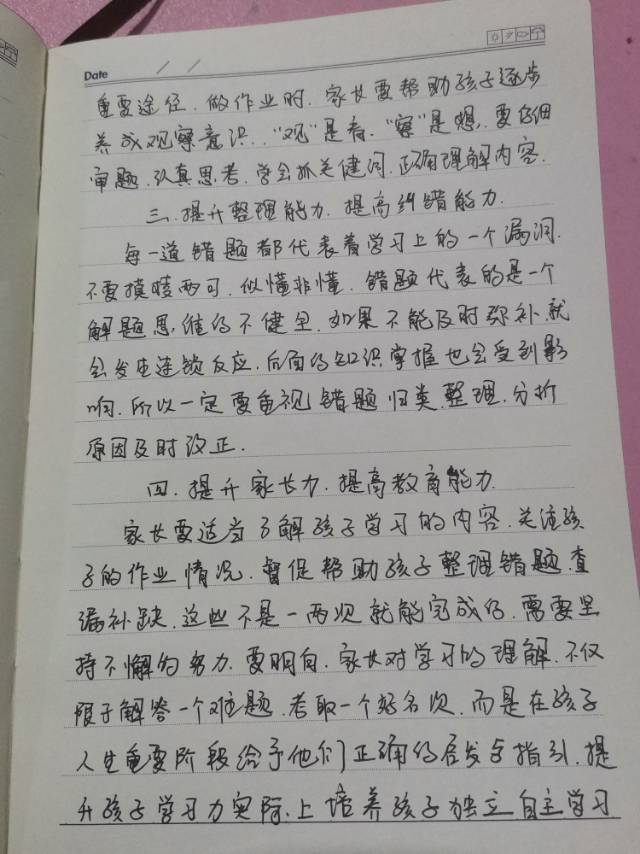 Date / /
重要途径.做作业时.家长要帮助孩子逐步
养成观察意识."观"是看."察"是想.要仔细
审题.认真思考.学会抓关键词.正确理解内容.
三.提升整理能力.提高纠错能力.
每一道错题都代表着学习上的一个漏洞.
不要模睖两可.似懂非懂.错题代表的是一个
解题思维的不健全.如果不能及时弥补.就
会发生连锁反应.后面的知识掌握也会受到影
响.所以一定要重视错题归类.整理.分析
原因及时改正.
四.提升家长力.提高教育能力.
家长要适当了解孩子学习的内容.关注孩
子的作业情况.督促帮助孩子整理错题.查
漏补缺.这些不是一两次就能完成的.需要坚
持不懈的努力.要明白.家长对学习的理解.不仅
限于解答一个难题.考取一个好名次.而是在孩子
人生重要阶段给予他们正确的启发与指引.提
升孩子学习力实际.上培养孩子独立自主学习